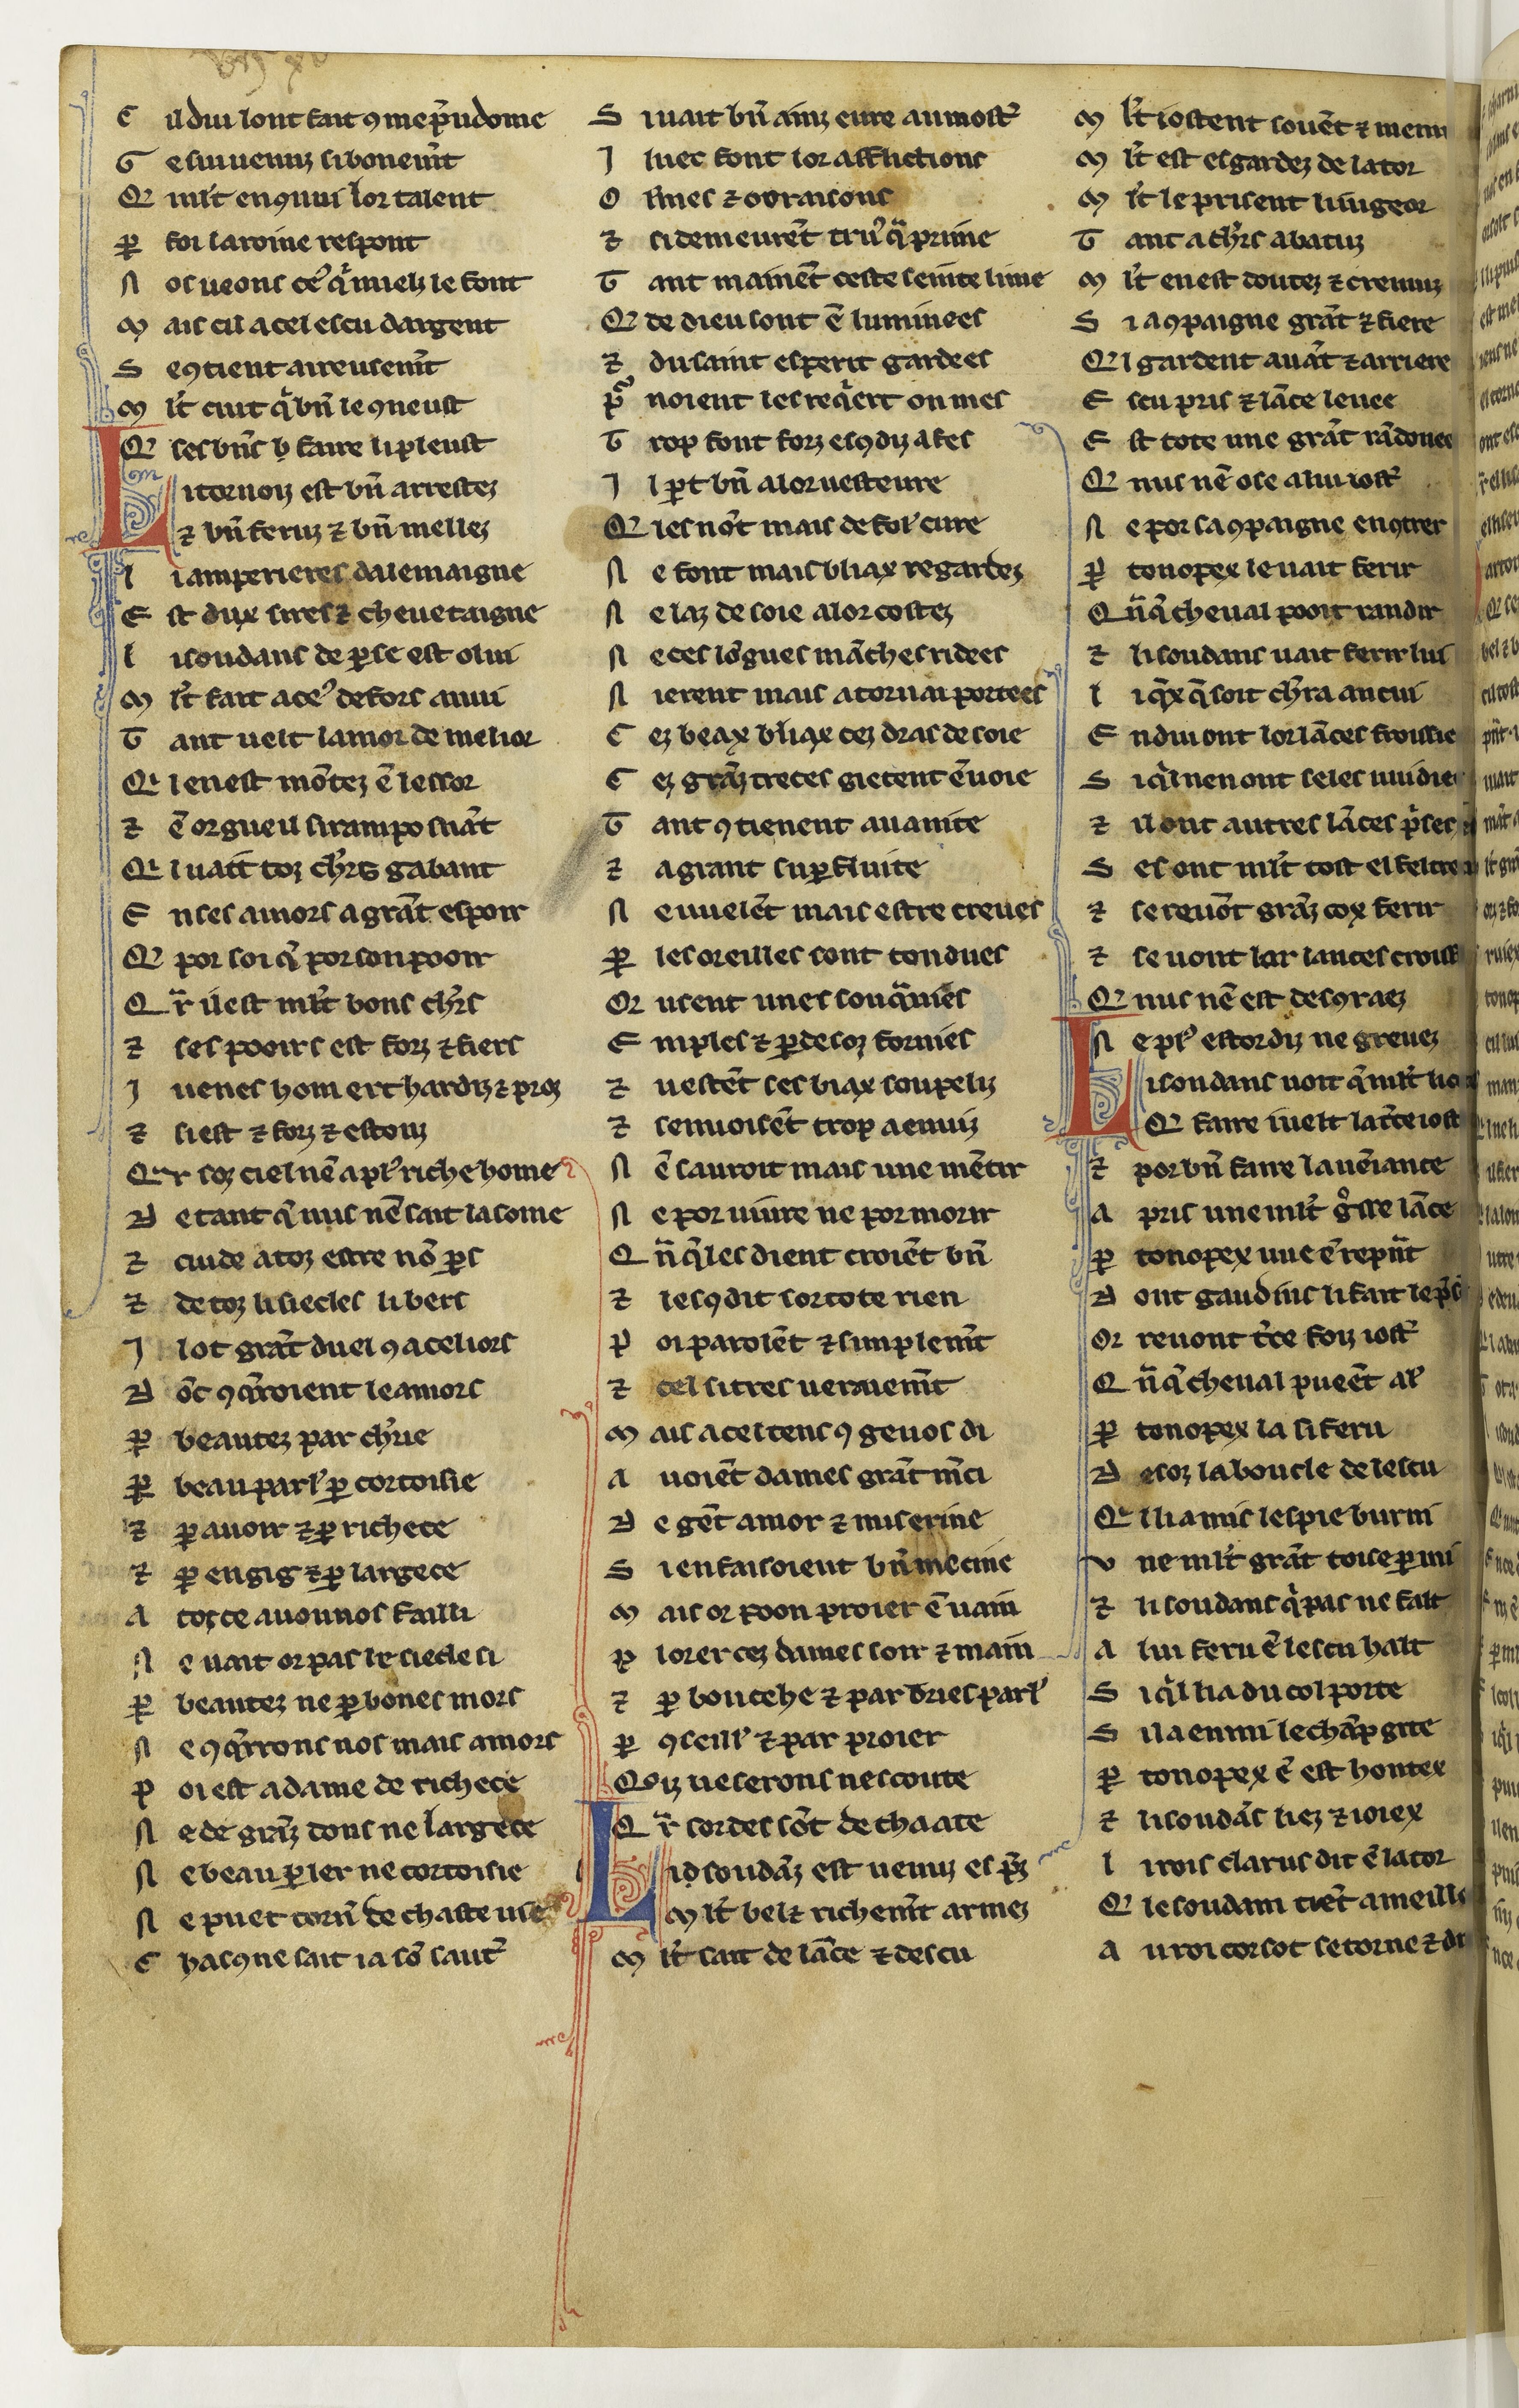 C il dui lont fait ꝯme p̃udome
G e sui uenuz si bonem̃t
Q mlt̃ enꝯnui lor talent
ꝑ foi la roine respont
N os ueons ceꝰ q̃ mielz le font
M ais cil a cel escu dargent
S e ꝯtient aireusem̃t
M lt̃ cuit q̃ bñ le ꝯneust
Q ses bñs ꝑ faire li pleust
L i tornoiz est bñ arrestez
⁊ bñ feruz ⁊ bñ mellez
L i amperieres dalemaigne
E st dux sires ⁊ cheuetaigne
L i soudans de ꝑse est o lui
M lt̃ fait a ceꝰ defors anui
T ant uelt lamor de melior
Q l en est mõtez ẽ lessor
⁊ ẽ orgueil si ramposnãt
Q l uait toz chr̃s gabant
E n ses amors a grãt espoir
Q por soi q̃ por son pooir
Q r̃ il est mlt̃ bons chr̃s
⁊ ses pooirs est forz ⁊ fiers
J uenes hom ert hardiz ⁊ proz
⁊ si est ⁊ forz ⁊ estouz
Q r soz ciel nẽ a plꝰ riche home
D e tant q̃ nus nẽ sait la some
⁊ cuide a toz estre nõ ꝑs
⁊ de toz li siecles li bers
J l ot grãt duel ꝯ a celiors
D õc ꝯq̃rroient le amors
ꝑ beautez par chr̃ie
ꝑ beau parlꝰ ꝑ cortoisie
⁊ ꝑ auoir ⁊ ꝑ richece
⁊ ꝑ engig ⁊ ꝑ largece
A tot ce auonnos failli
N e uait or pas le siecle si
ꝑ beautez ne ꝑ bones mors
N e ꝯq̃rrons nos mais amors
P oi est a dame de richece
N e de grãz dons ne largece
N e beau ꝑler ne cortoisie
N e puet torñ de chaste uie
C hascune sait ia sõ sautꝰ
S i uait bñ ainz eure au mostꝰ
J luec font lor afflictions
O rines ⁊ ooraisons
⁊ si demeurẽt truꝰ q̃ prime
T ant mainẽt ceste seinte lime
Q de dieu sont ẽluminees
⁊ du saint esperit gardees
Pꝰ noient les req̃ert on mes
T rop font forz escꝯdiz a fes
J l ꝑt bñ a lor uesteure
Q les nõt mais de folꝰ cure
N e font mais bliax regardez
N e laz de soie a lor costez
N e ces lõgues mãches ridees
N ierent mais a tornai portees
C ez beax bliax cez dras de soie
C ez grãz treces gietent ẽ uoie
T ant ꝯtienent a uanite
⁊ a grant suꝑfluite
N e uuelẽt mais estre creues
ꝑ les oreilles sont tondues
Or usent unes souq̃nies
E mples ⁊ ꝑ desoz fornies
⁊ uestẽt ses biax soupeliz
⁊ senuoisẽt trop a enuiz
N ẽ sauroit mais une mẽtir
N e por uiure ne por morir
Q ñq̃ les dient croiẽt bñ
⁊ lescꝯdit sor tote rien
P oi parolẽt ⁊ simplem̃t
⁊ cel si tres ueraiem̃t
M ais a cel tens ꝯ ge uos di
A uoiẽt dames grãt m̃ci
D e gẽt amor ⁊ miserine
S i en faisoient bñ mecine
M ais or poon proier ẽ uain
P lorer cez dames soir ⁊ main
⁊ ꝑ boutehe ⁊ par bries parlꝰ
ꝑ ꝯseillꝰ ⁊ par proier
Q oiz ue serons nescoute
Q r̃ sordes sõt de chaate
L i soudãz est uenuz es p̃z
M lt̃ bel ⁊ richem̃t armez
M lt̃ sait de lãce ⁊ descu
M lt̃ iostent souẽt ⁊ menu
M lt̃ est esgardez de la tor
M lt̃ le prisent li iugeor
T ant a chr̃s abatuz
M lt̃ en est doutez ⁊ cremuz
S i a ꝯpaigne grãt ⁊ fiere
Q l gardent auãt ⁊ arriere
E scu pris ⁊ lãce leuee
E st tote une grãt rãdonee
Q nus nẽ ose a lui iostꝰ
N e por sa ꝯpaigne enꝯtrer
P tonopex le uait ferir
Q ñq̃ cheual pooit randir
⁊ li soudans uait ferir lui
L i q̃x q̃ soit chr̃ra ancui
E ndui ont lor lãces froissie
S i q̃l nen ont seles uuidie
⁊ il ont autres lãces p̃ses
S es ont mlt̃ tost el feltre
⁊ se reuõt grãz cox ferir
⁊ se uont lor lances croiss
Q nus nẽ est desꝯraez
N e plꝰ estordiz ne greuez
L i soudans uoit q̃ mlt̃
Q faire i uelt la t̃ce iost
⁊ por bñ faire la uẽiance
A pris une mlt̃ gr̃sse lãce
P tonopex une ẽ repñt
D ont gaudins li fait le p̃s
Or reuont t̃ce foiz iostꝰ
Q ñq̃ cheual pueẽt alꝰ
P tonopex la si feru
D esoz la boucle de lescu
Q l li a mis lespie burni
U ne mlt̃ grãt toise ꝑ mi
⁊ li soudans q̃ pas ne falt
A lui feru ẽ lescu halt
S i q̃l li a du col porte
S i la enmi le chãp gite
P tonopex ẽ est hontex
⁊ li soudãs liez ⁊ ioiex
L i rois clarus dit ẽ la tor
Q le soudam tiẽt a meill
A u roi corsot se torne ⁊ di